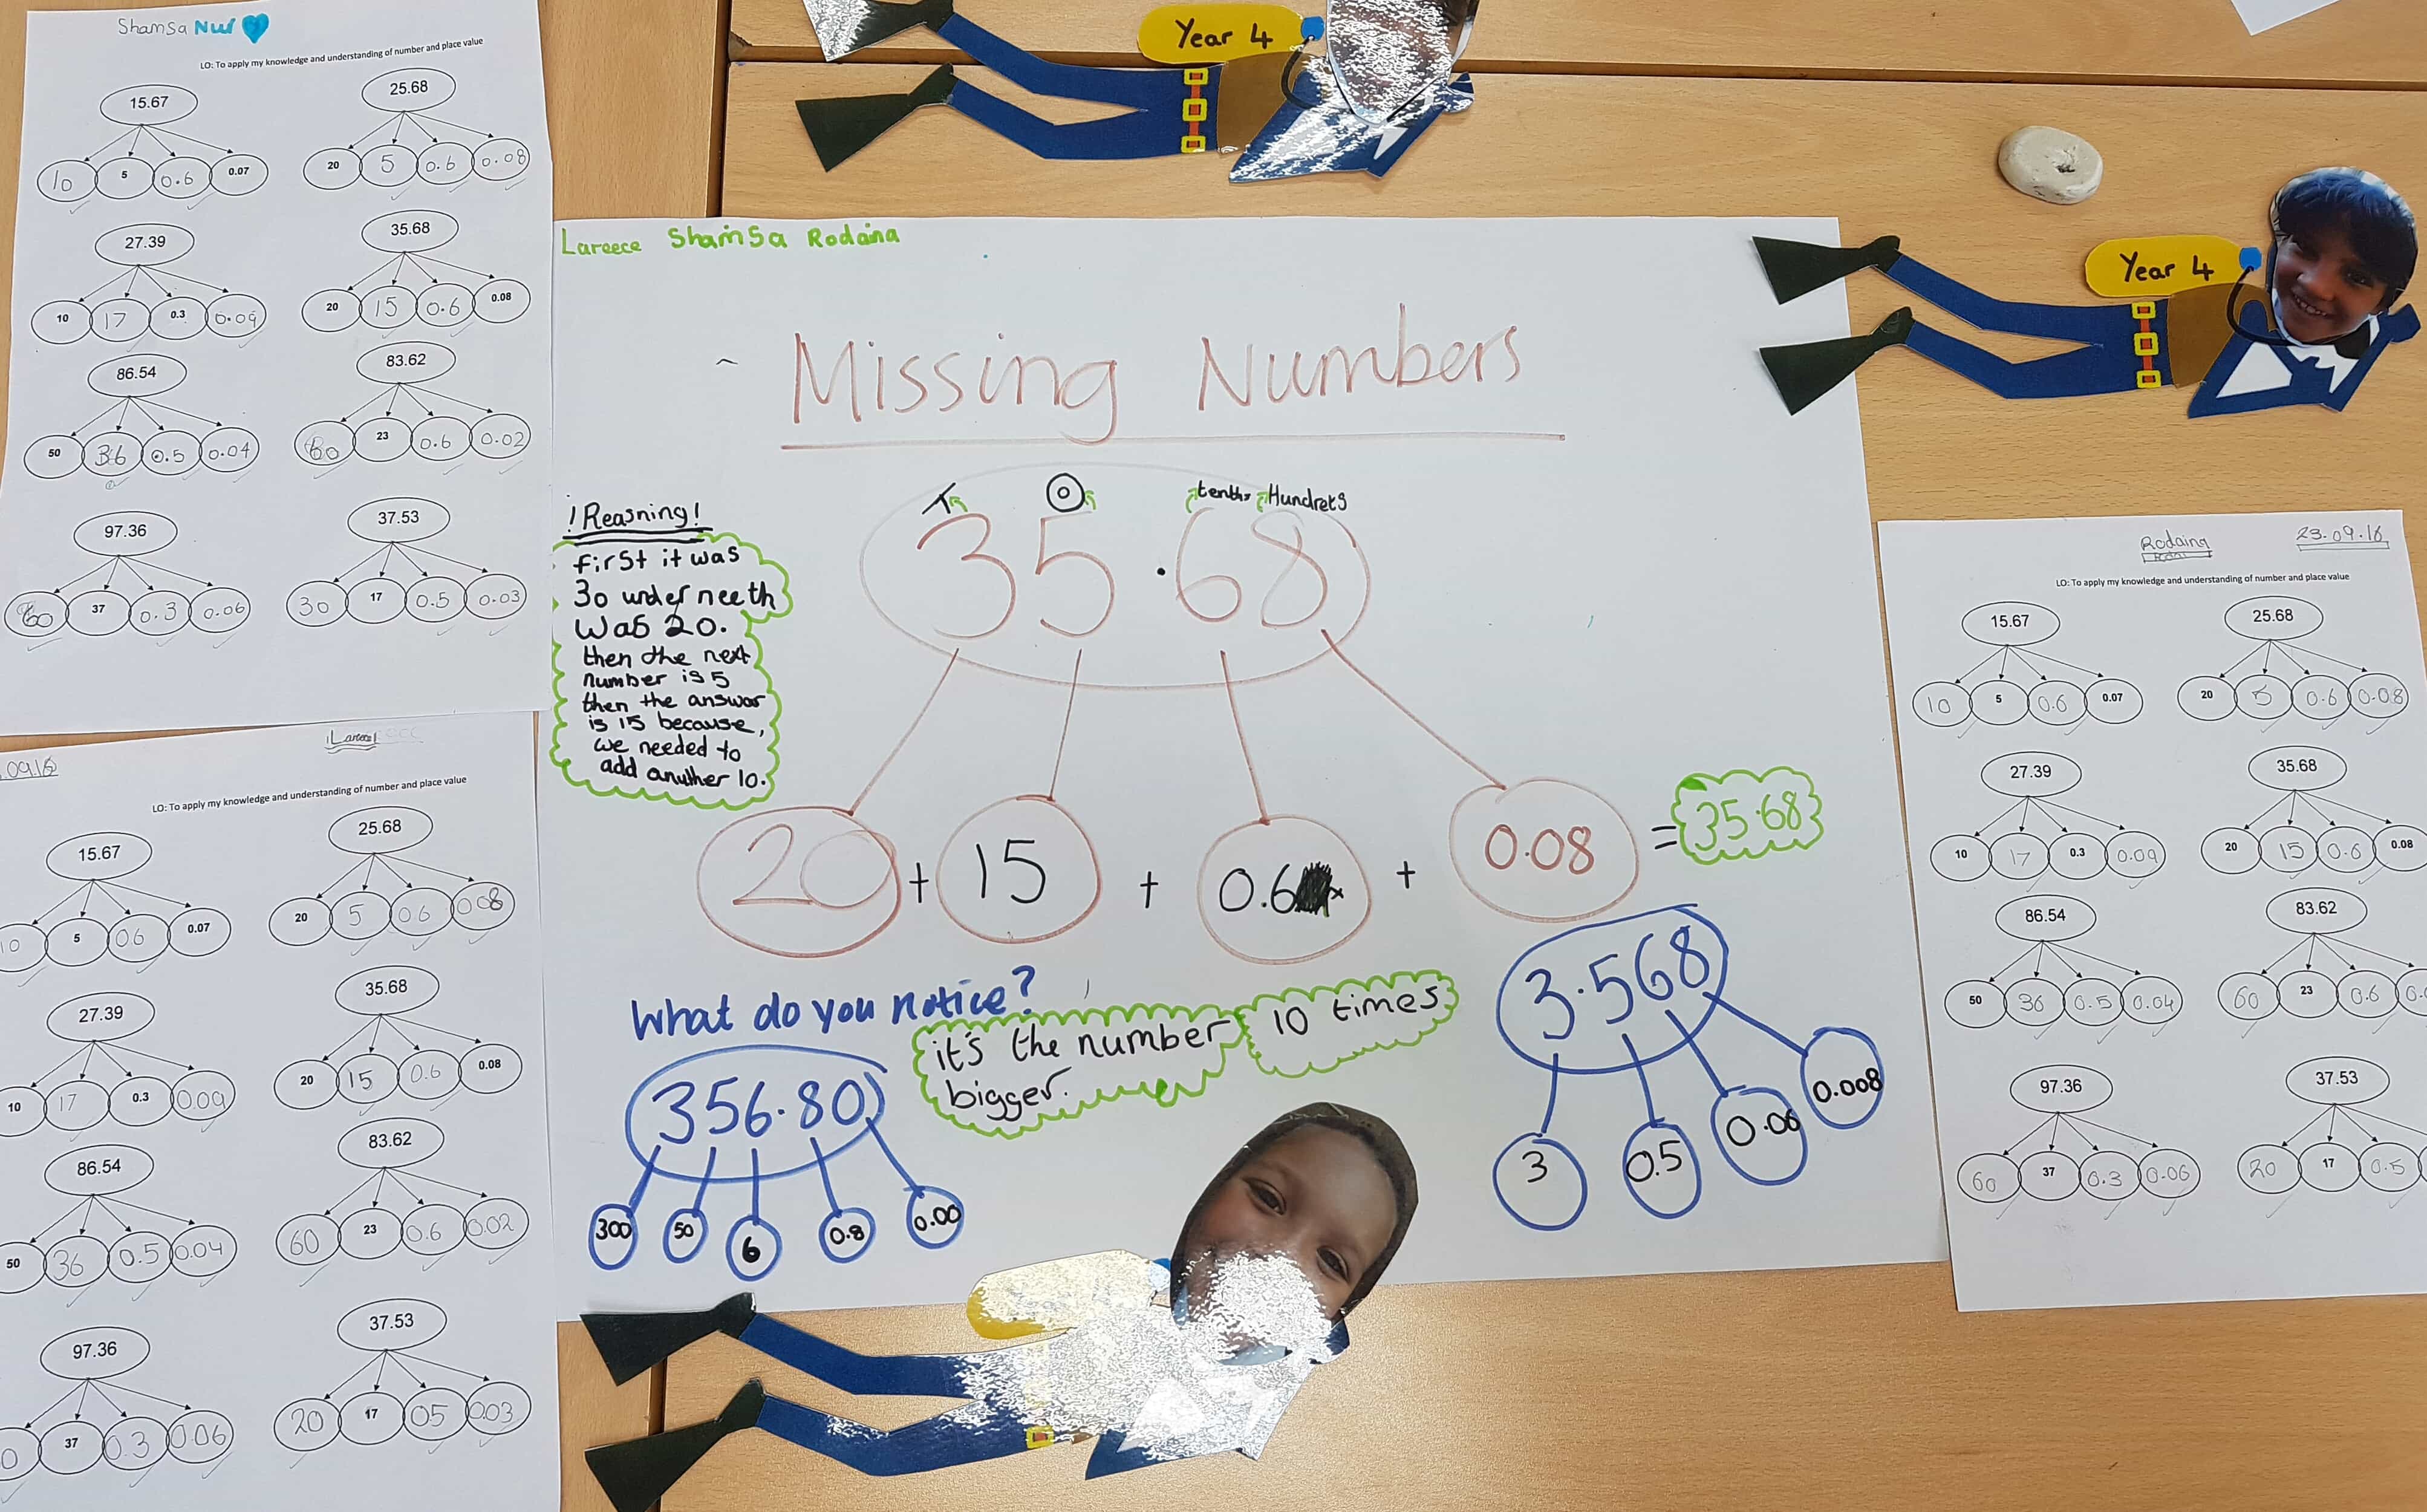 Shamsa Nur
LO: To apply my knowledge and understanding of number and place value
15.67
10 5 0.6 0.07
25.68
20 5 0.6 0.08
27.39
10 17 0.3 0.09
35.68
20 15 0.6 0.08
86.54
50 36 0.5 0.04
83.62
60 23 0.6 0.02
97.36
60 37 0.3 0.06
37.53
30 17 0.5 0.03
Year 4
Year 4
Lareece Shamsa Rodaina
Missing Numbers
T O tenths Hundrets
35.68
!Reasning!
first it was
30 under neeth
was 20.
then the next
number is 5
then the answor
is 15 because,
we needed to
add anuther 10.
20 + 15 + 0.6 + 0.08 = 35.68
What do you notice?
it's the number 10 times
bigger.
356.80
300 50 6 0.8 0.00
3.568
3 0.5 0.06 0.008
.09.16
!Lareece!
LO: To apply my knowledge and understanding of number and place value
15.67
10 5 06 0.07
25.68
20 5 06 0.08
27.39
10 17 0.3 0.09
35.68
20 15 0.6 0.08
86.54
50 36 0.5 0.04
83.62
60 23 0.6 0.02
97.36
0 37 0.3 0.06
37.53
20 17 05 0.03
Rodaina
23.09.16
LO: To apply my knowledge and understanding of number and place value
15.67
10 5 0.6 0.07
25.68
20 5 0.6 0.08
27.39
10 17 0.3 0.09
35.68
20 15 0.6 0.08
86.54
50 36 0.5 0.04
83.62
60 23 0.6 0.
97.36
60 37 0.3 0.06
37.53
20 17 0.5